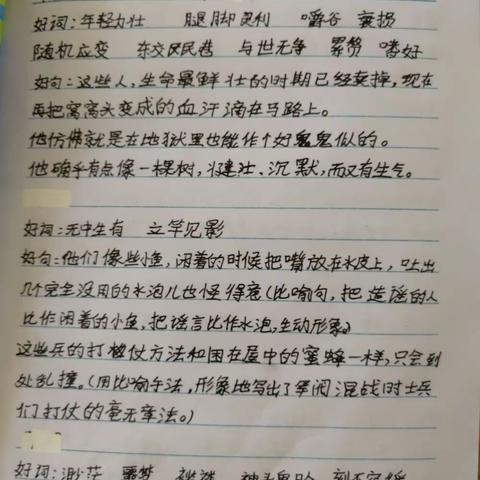 好词:年轻力壮 腿脚灵利 嚼谷 衰损
随机应变 东交民巷 与世无争 累赘 嗜好
好句:这些人,生命最鲜壮的时期已经卖掉,现在
再把窝窝头变成的血汗滴在马路上。
他仿佛就是在地狱里也能作个好鬼鬼似的。
他确乎有点像一棵树,壮、沉默,而又有生气。
好词:无中生有 立竿见影
好句:他们像些小鱼,闲着的时候把嘴放在水皮上,吐出
几个完全没用的水泡儿也怪得意(比喻句,把造谣的人
比作闲着的小鱼,把谣言比作水泡,生动形象。)
这些兵的打仗方法和困在屋中的蜜蜂一样,只会到
处乱撞。(用比喻手法,形象地写出了军阀混战时士兵
们打仗的毫无章法。)
好词:渺茫 噩梦